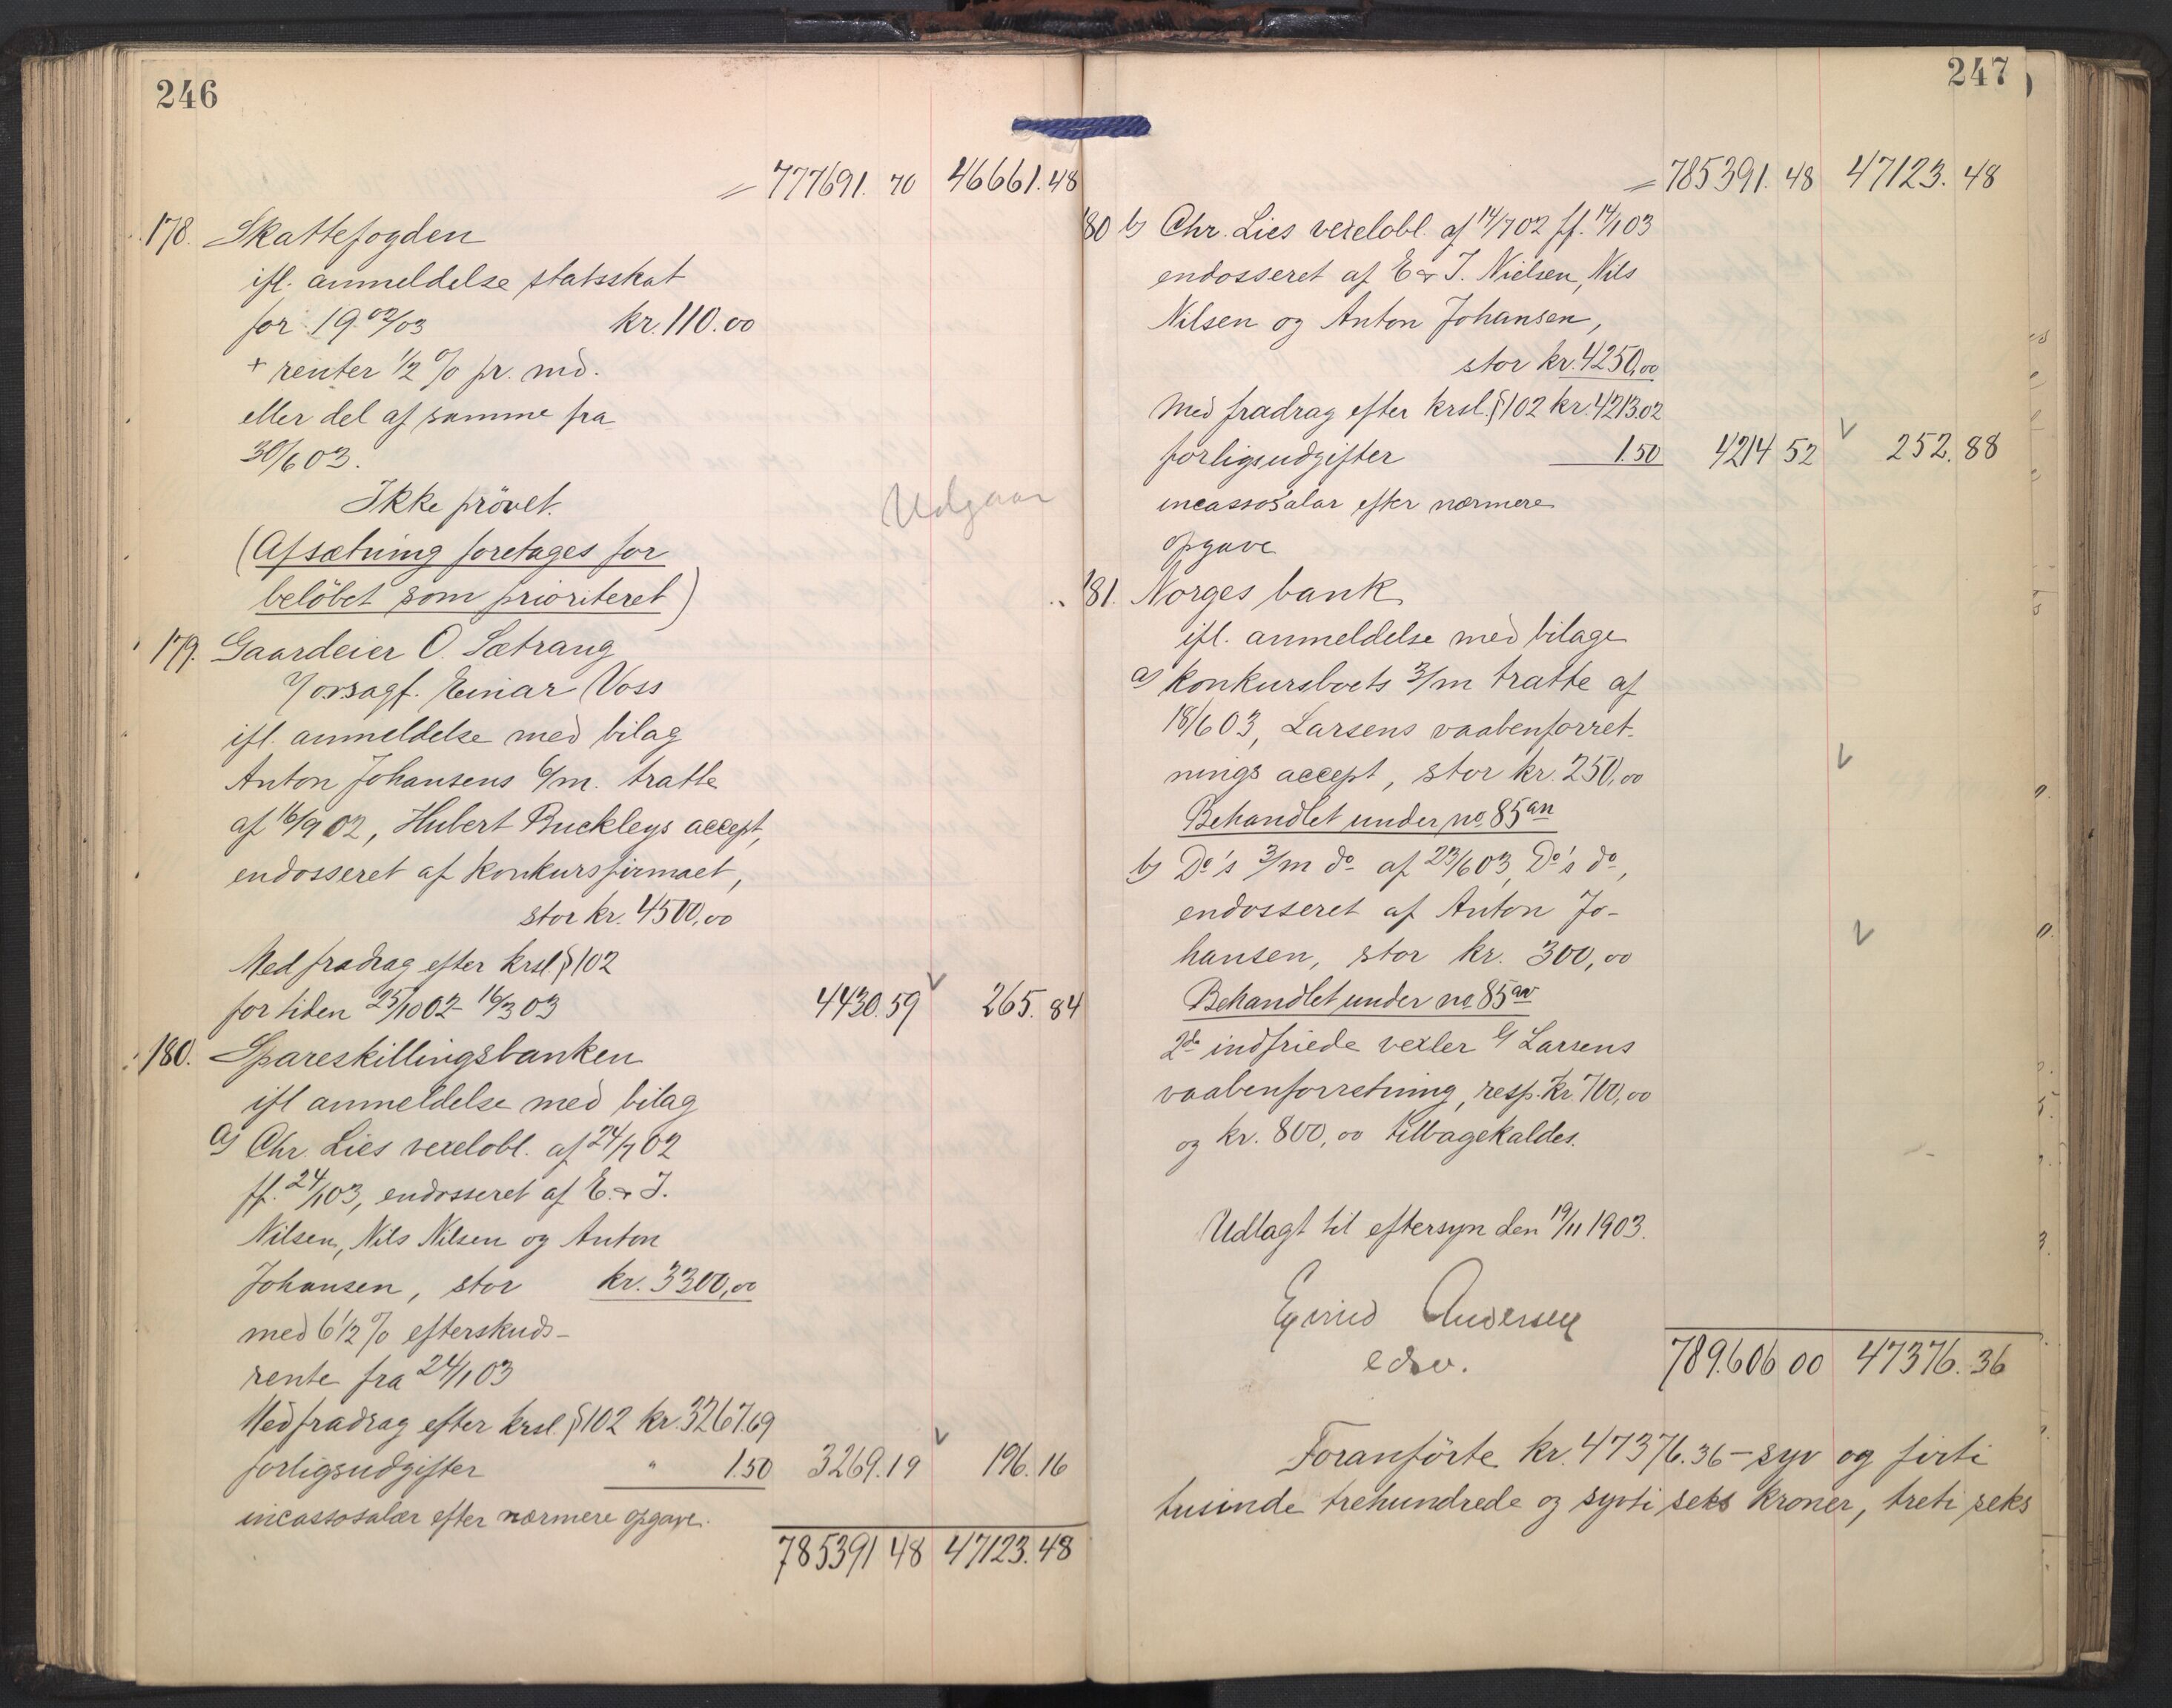 246
777691. 70 46661.48
178. Skattefogden
ifl. anmeldelse statsskat
for 1902/03 kr. 110.00
+ renter 1/2 % pr. md.
eller del af samme fra
30/6 03.
Ikke prövet.
Udgaar
(Afsætning foretages for
belöbet som prioriteret)
179. Gaardeier O. Sætrang
v/ovrsagf. Einar Voss
ifl. anmeldelse med bilag
Anton Johansens 6/m. tratte
af 16/9 02, Hubert Buckleys accept,
endosseret af konkursfirmaet,
stor kr. 4500,00
Med fradrag efter krsl. § 102
for tiden 25/10 02 - 16/3 03 4430.59 265.84
180. Spareskillingsbanken
ifl anmeldelse med bilag
a) Chr. Lies vexelobl. af 24/7 02
ff. 24/1 03, endosseret af E. & J.
Nilsen, Nils Nilsen og Anton
Johansen, stor kr. 3300,00
med 6 1/2 % efterskuds-
rente fra 24/1 03
Med fradrag efter krsl. § 102 kr. 3267.69
forligsudgifter " 1.50 3269.19 196.16
incassosalær efter nærmere opgave.
785391 48 47123.48
247
785391. 48 47123. 48
180 b) Chr. Lies vexelobl. af 14/7 02 ff. 14/1 03
endosseret af E & J. Nielsen, Nils
Nilsen og Anton Johansen,
stor kr. 4250,00
Med fradrag efter krsl. § 102 kr. 4213.02
forligsudgifter 1.50 4214 52 252.88
incassosalar efter nærmere
opgave
181. Norges bank
ifl. anmeldelse med bilage
a) konkursboets 3/m tratte af
18/6 03, Larsens vaabenforret-
nings accept, stor kr. 250,00
Behandlet under no. 85 an
b) Do's 3/m do af 23/6 03, Do's do,
endosseret af Anton Jo-
hansen, stor kr. 300,00
Behandlet under no. 85 av
2de indfriede vexler % Larsens
vaabenforretning, resp. kr. 700,00
og kr. 800,00 tilbagekaldes.
Udlagt til eftersyn den 19/11 1903.
Eyvind Andersen
edsv.
789.606 00 47376. 36
Foranförte kr. 47376.36 – syv og firti
tusinde trehundrede og sytti seks kroner, treti seks